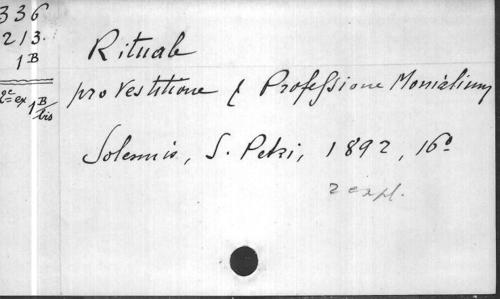 336
213.
1B
2e ex 1B
bis
Rituale
pro Vestitione & Professione Monialium
Solesmis, S. Petri, 1892, 16o
2 expl.